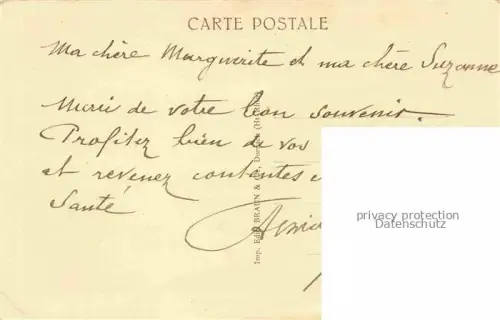 CARTE POSTALE
Ma chère Marguerite et ma chère Suzanne
Merci de votre bon souvenir.
Profitez bien de vos
et revenez contentes
Santé
Imp. Edit. BRAUN & Cie,
privacy protection
Datenschutz